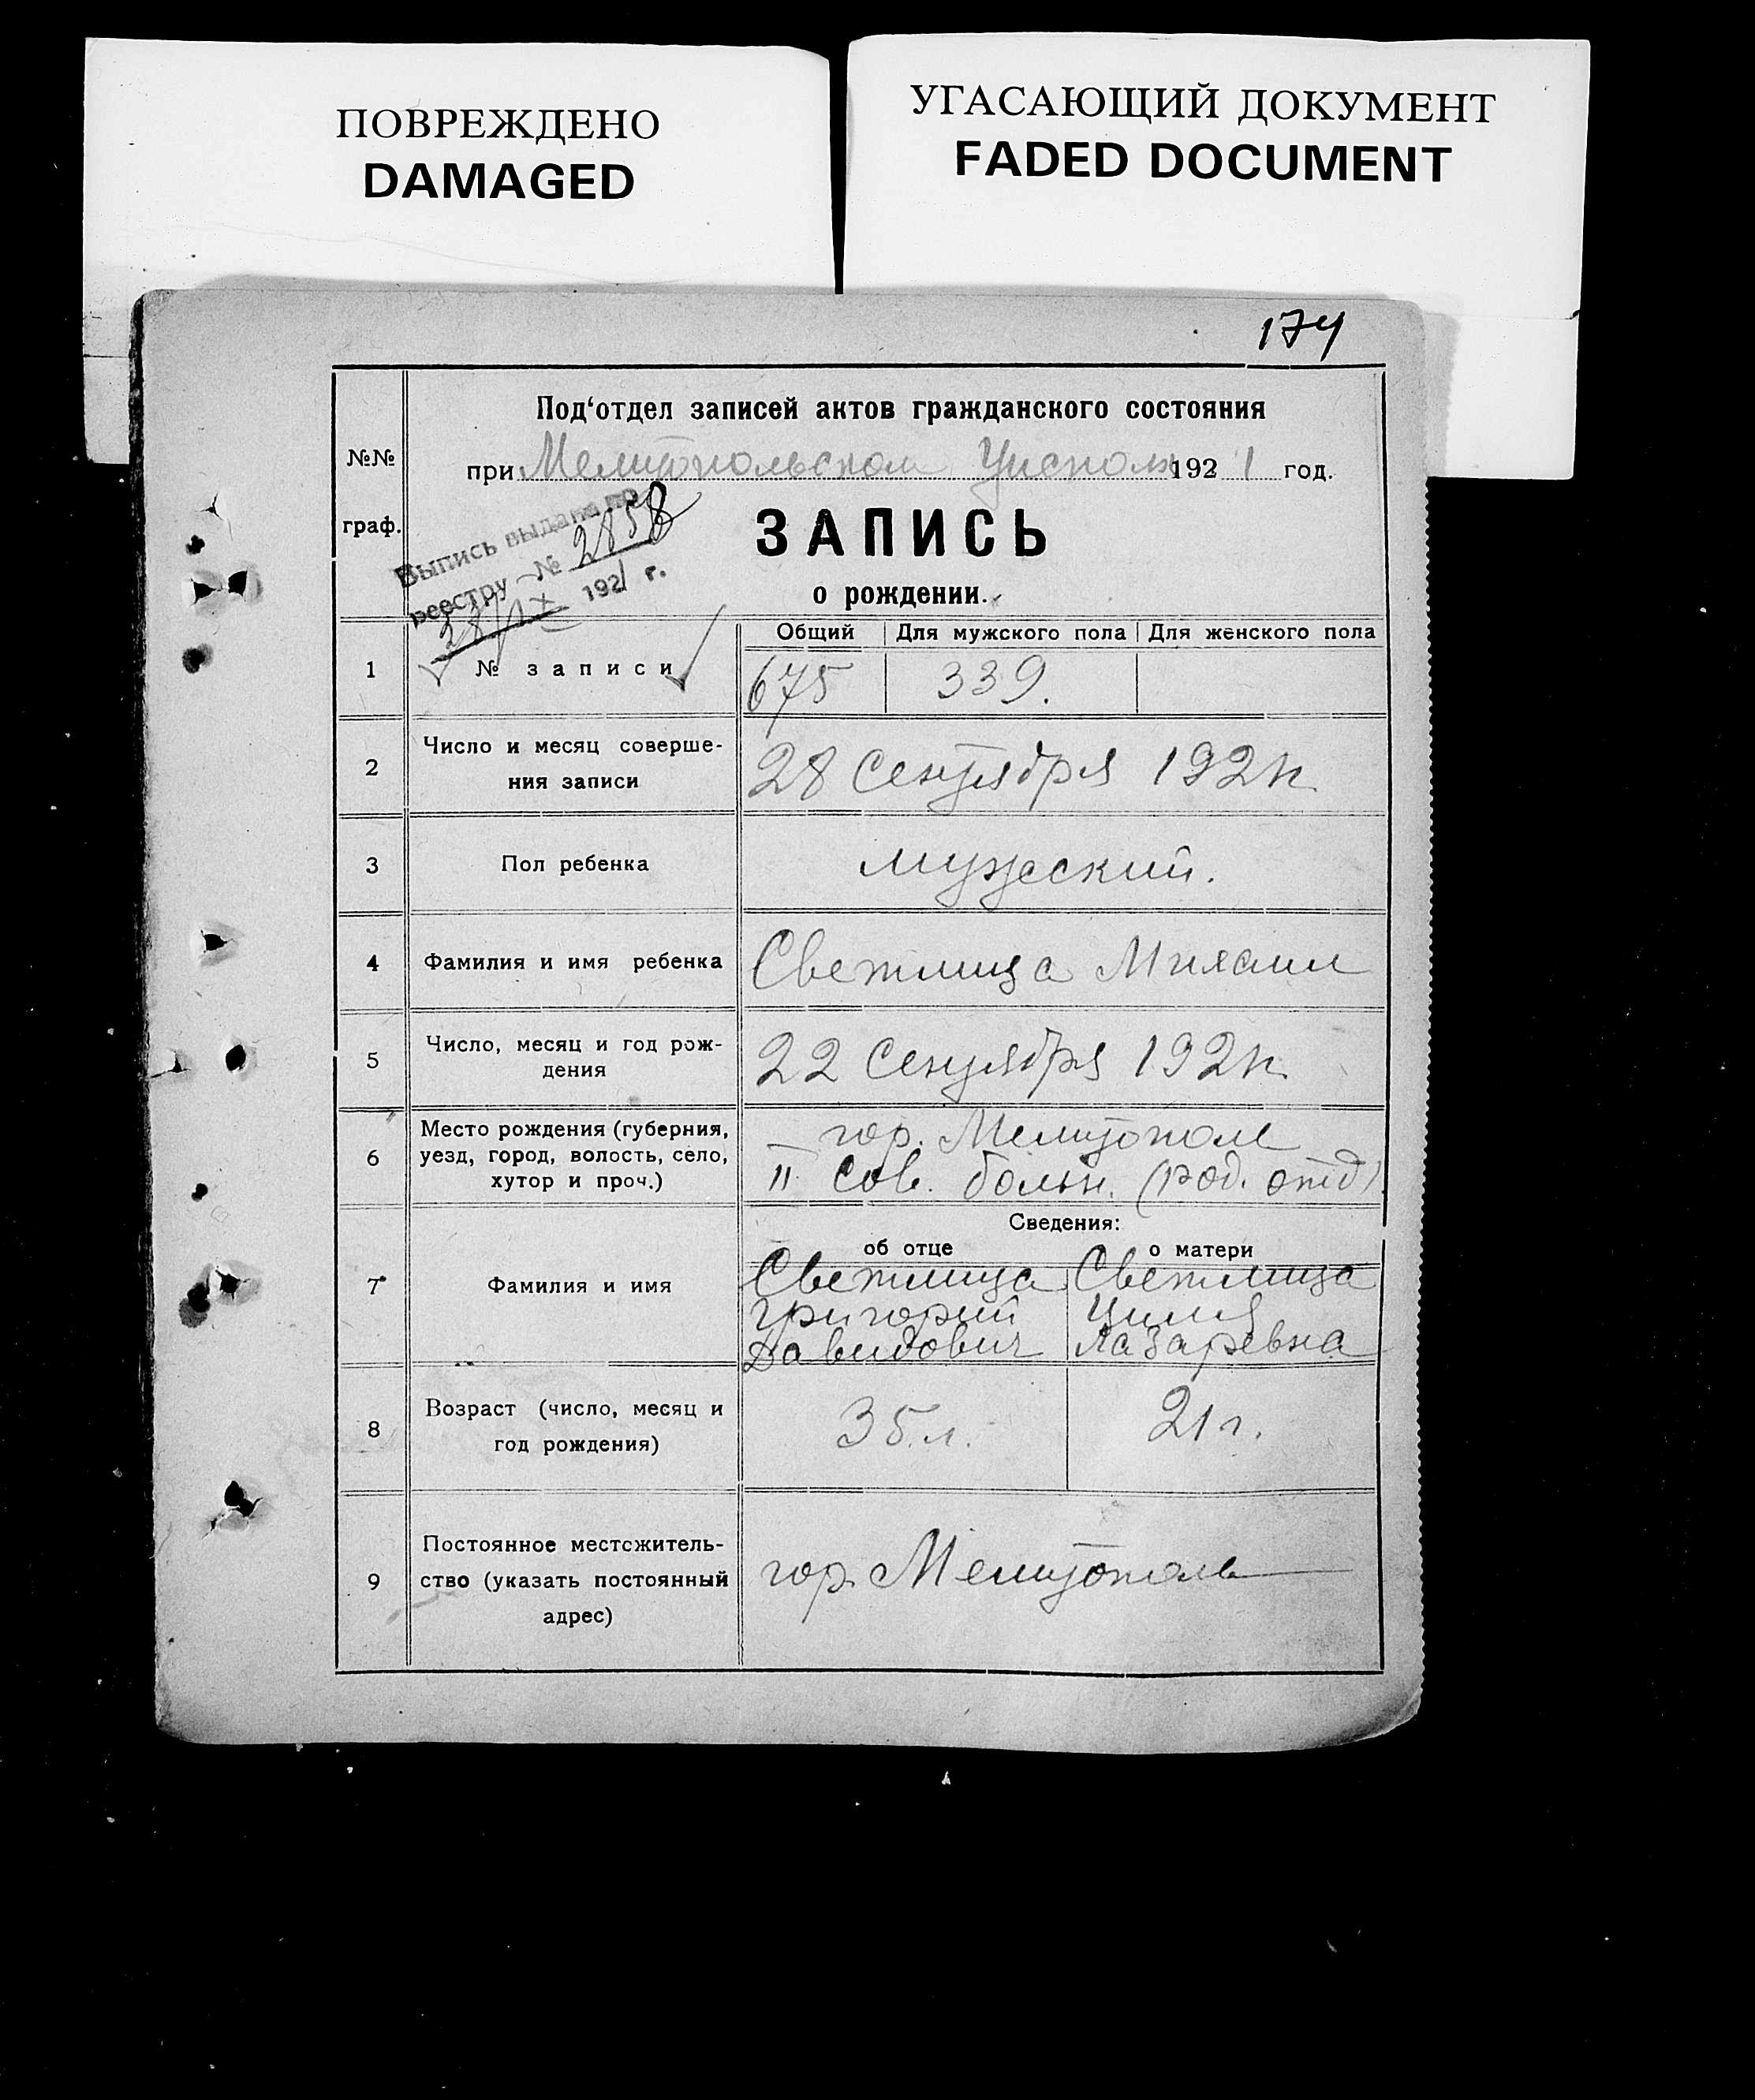 ПОВРЕЖДЕНО
DAMAGED
УГАСАЮЩИЙ ДОКУМЕНТ
FADED DOCUMENT
174
№№
граф.
Под‘отдел записей актов гражданского состояния
при Мелитопольском Уисполк 1921 год.
Выпись выдана по
реестру № 2858
28/IX 1921 г.
ЗАПИСЬ
о рождении.
Общий Для мужского пола Для женского пола
1 № записи 675 339.
2 Число и месяц соверше-
ния записи
28 Сентября 1921г.
3 Пол ребенка мужеский.
4 Фамилия и имя ребенка Светлица Михаил
5 Число, месяц и год рож-
дения
22 Сентября 1921г.
6 Место рождения (губерния,
уезд, город, волость, село,
хутор и проч.)
гор. Мелитополе
II Сов. больн. (род. отд)
Сведения:
об отце о матери
7 Фамилия и имя
Светлица Григорий Давидович
Светлица Циля Лазаревна
8 Возраст (число, месяц и
год рождения)
35 л. 21 г.
9 Постоянное местожитель-
ство (указать постоянный
адрес)
гор. Мелитополь